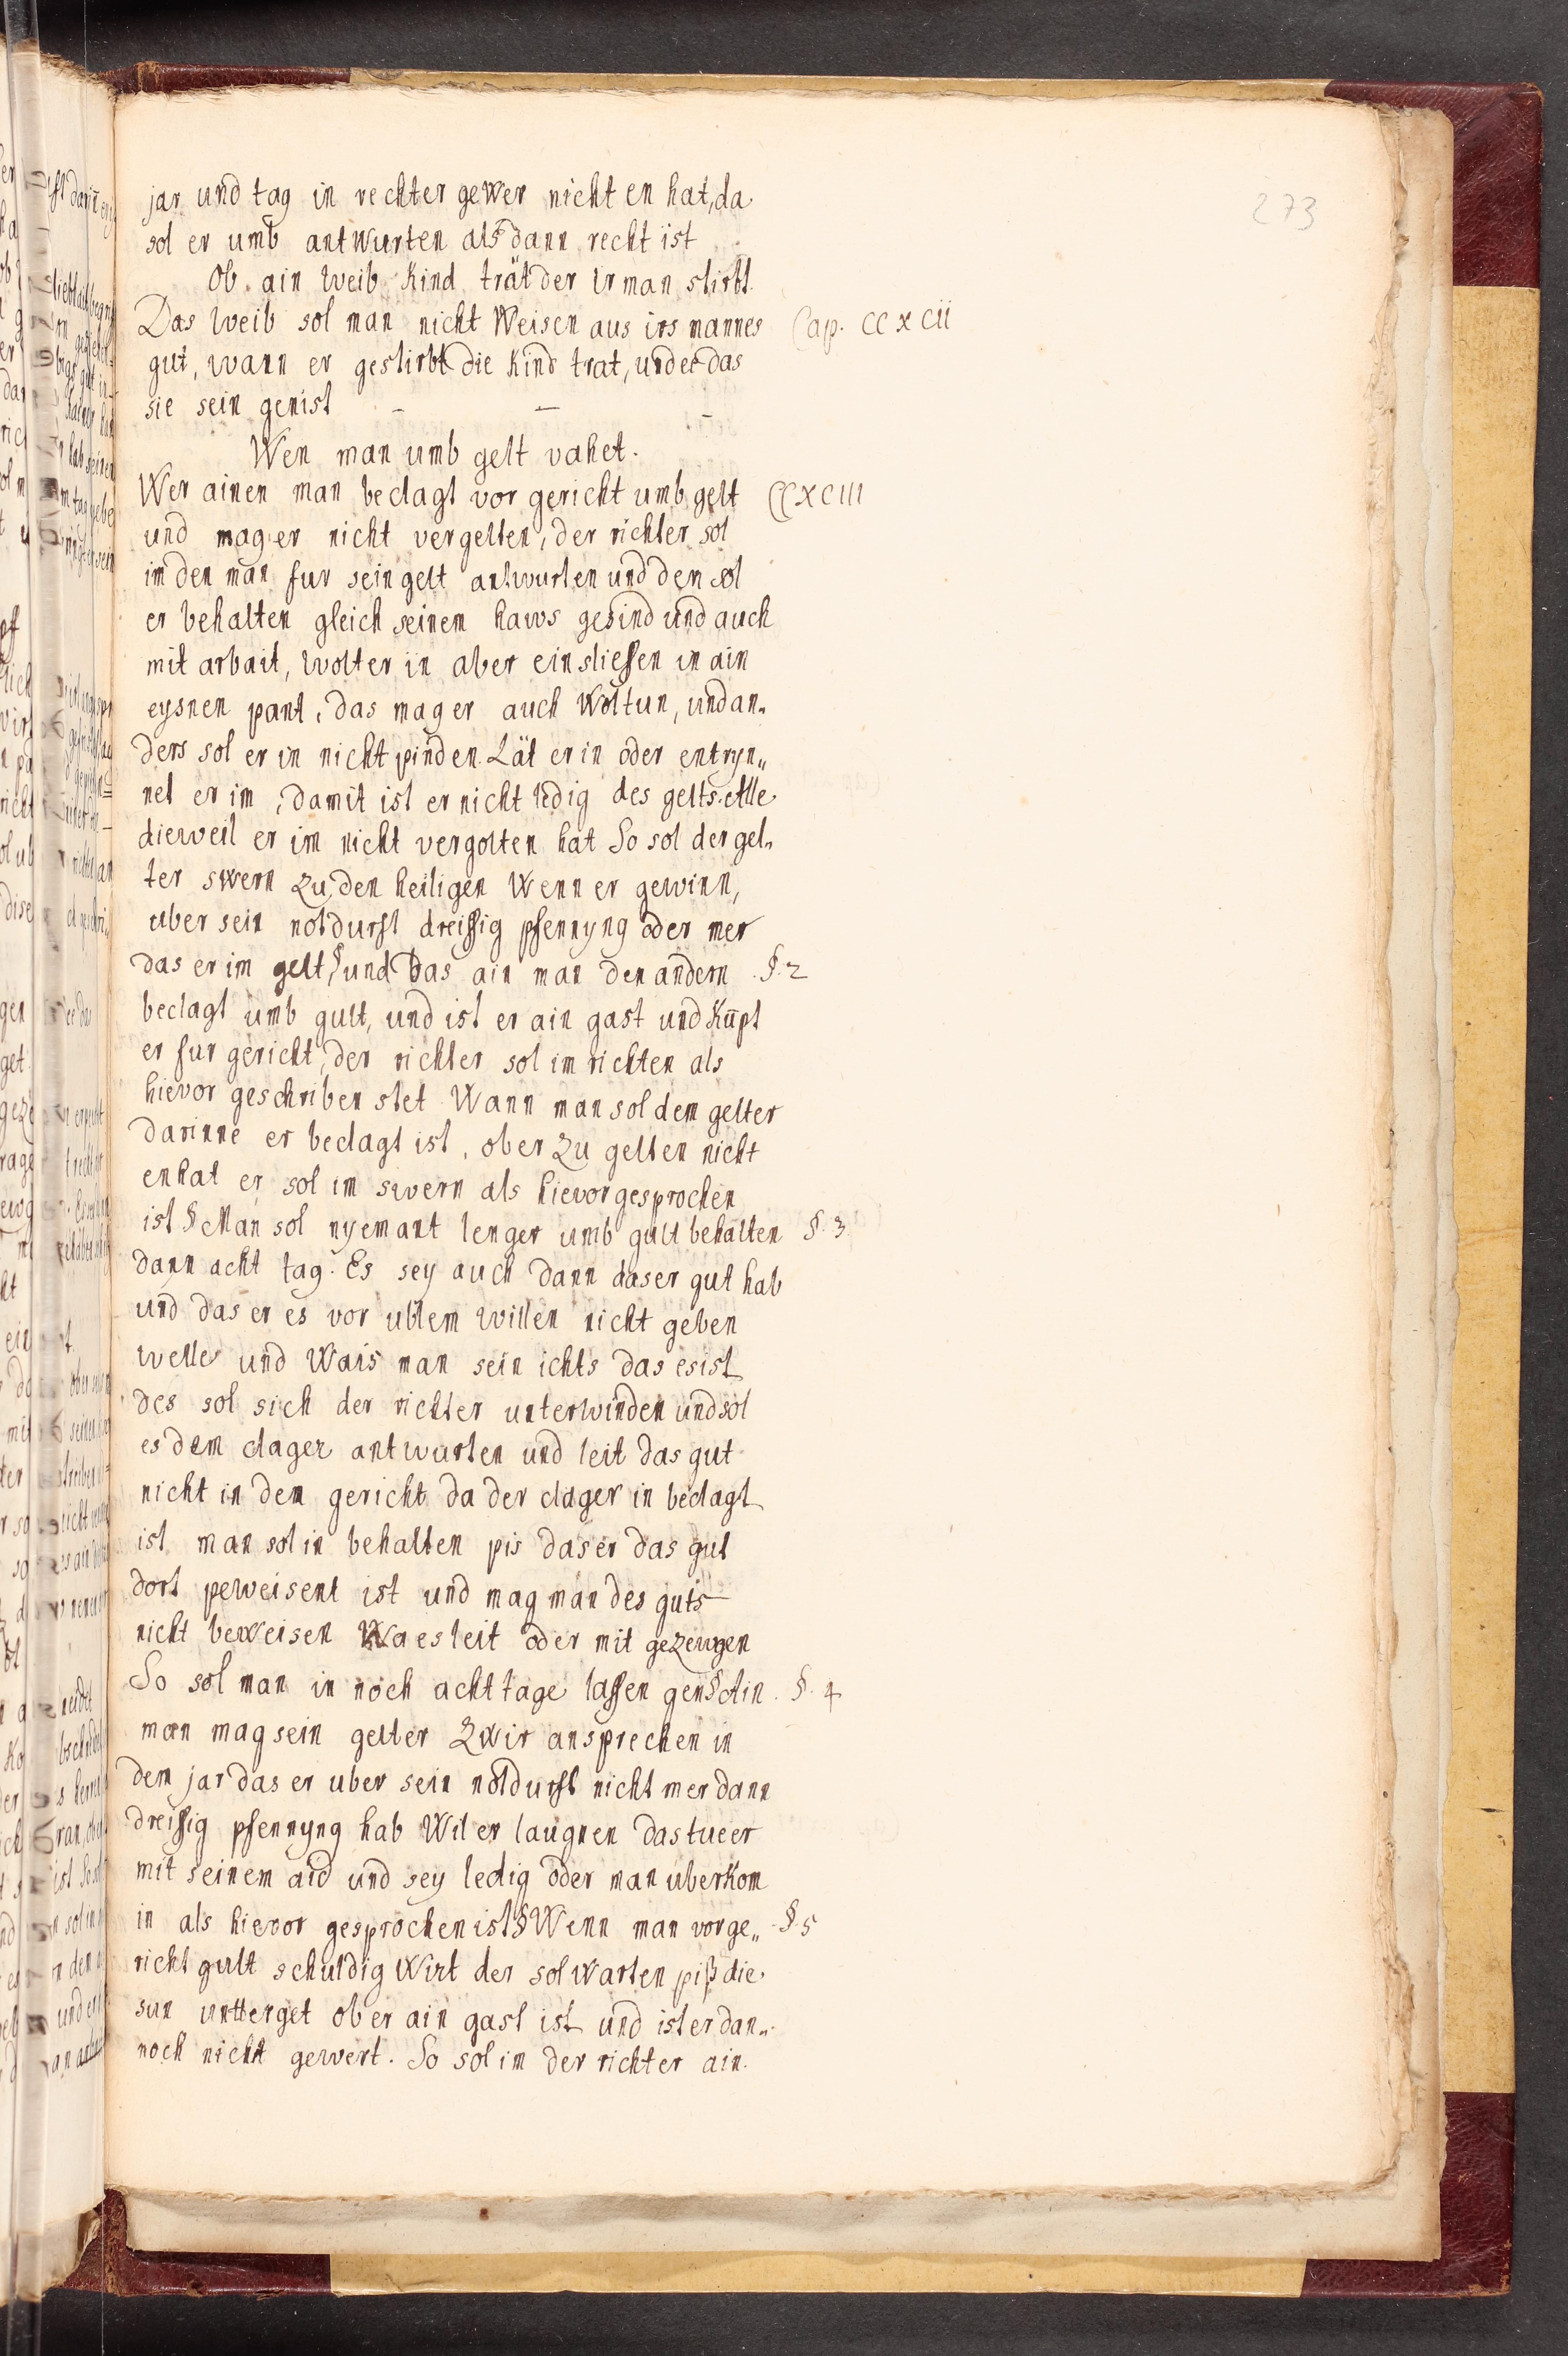 273
jar und tag in rechter gewer nicht en hat, da
sol er umb antwurten als dann recht ist
Ob ain weib Kind trät der ir man stirbt.
Das weib sol man nicht Weisen aus irs mannes Cap. CCXCII
gut, wann er gestirbt die Kind trat, under das
sie sein genist
Wen man umb gelt vahet.
Wer ainen man beclagt vor gericht umb gelt CCXCIII
und mag er nicht vergelten, der richter sol
im den man fur sein gelt antwurten und den sol
er behalten gleich seinem haws gesind und auch
mit arbait, wolt er in aber einsliessen in ain
eysnen pant, das mag er auch Wol tun, und an„
ders sol er in nicht pinden. Lät er in oder entryn„
net er im, damit ist er nicht ledig des gelts. Alle
dieweil er im nicht vergolten hat So sol der gel„
ter swern zu den heiligen Wenn er gewinn,
uber sein notdurft dreissig pfennyng oder mer
das er im gelt, § und Das ain man den andern §. 2
beclagt umb gult, und ist er ain gast und Kupt
er fur gericht, der richter sol im richten als
hievor geschriben stet Wann man sol dem gelter
darinne er beclagt ist, ob er zu gelten nicht
enhat er sol im swern als hievor gesprochen
ist § Man sol nyemant lenger umb gult behalten §. 3
dann acht tag. Es sey auch dann das er gut hab
und das er es vor ublem willen nicht geben
welle und Wais man sein ichts das es ist
des sol sich der richter unterwinden und sol
es dem clager antwurten und leit das gut
nicht in dem gericht da der clager in beclagt
ist man sol in behalten pis das er das gut
dort peweisent ist und mag man des guts
nicht beweisen Wa es leit oder mit gezewgen
So sol man in noch acht tage lassen gen § Ain §. 4
man mag sein gelter zwir ansprechen in
dem jar das er uber sein notdurft nicht mer dann
dreissig pfennyng hab Wil er laugnen das tue er
mit seinem aid und sey ledig oder man uberkom
in als hievor gesprochen ist § Wenn man vor ge„ § 5
richt gult schuldig Wirt der sol warten piß die
sun untterget ob er ain gast ist und ist er dan„
noch nicht gewert. So sol im der richter ain.